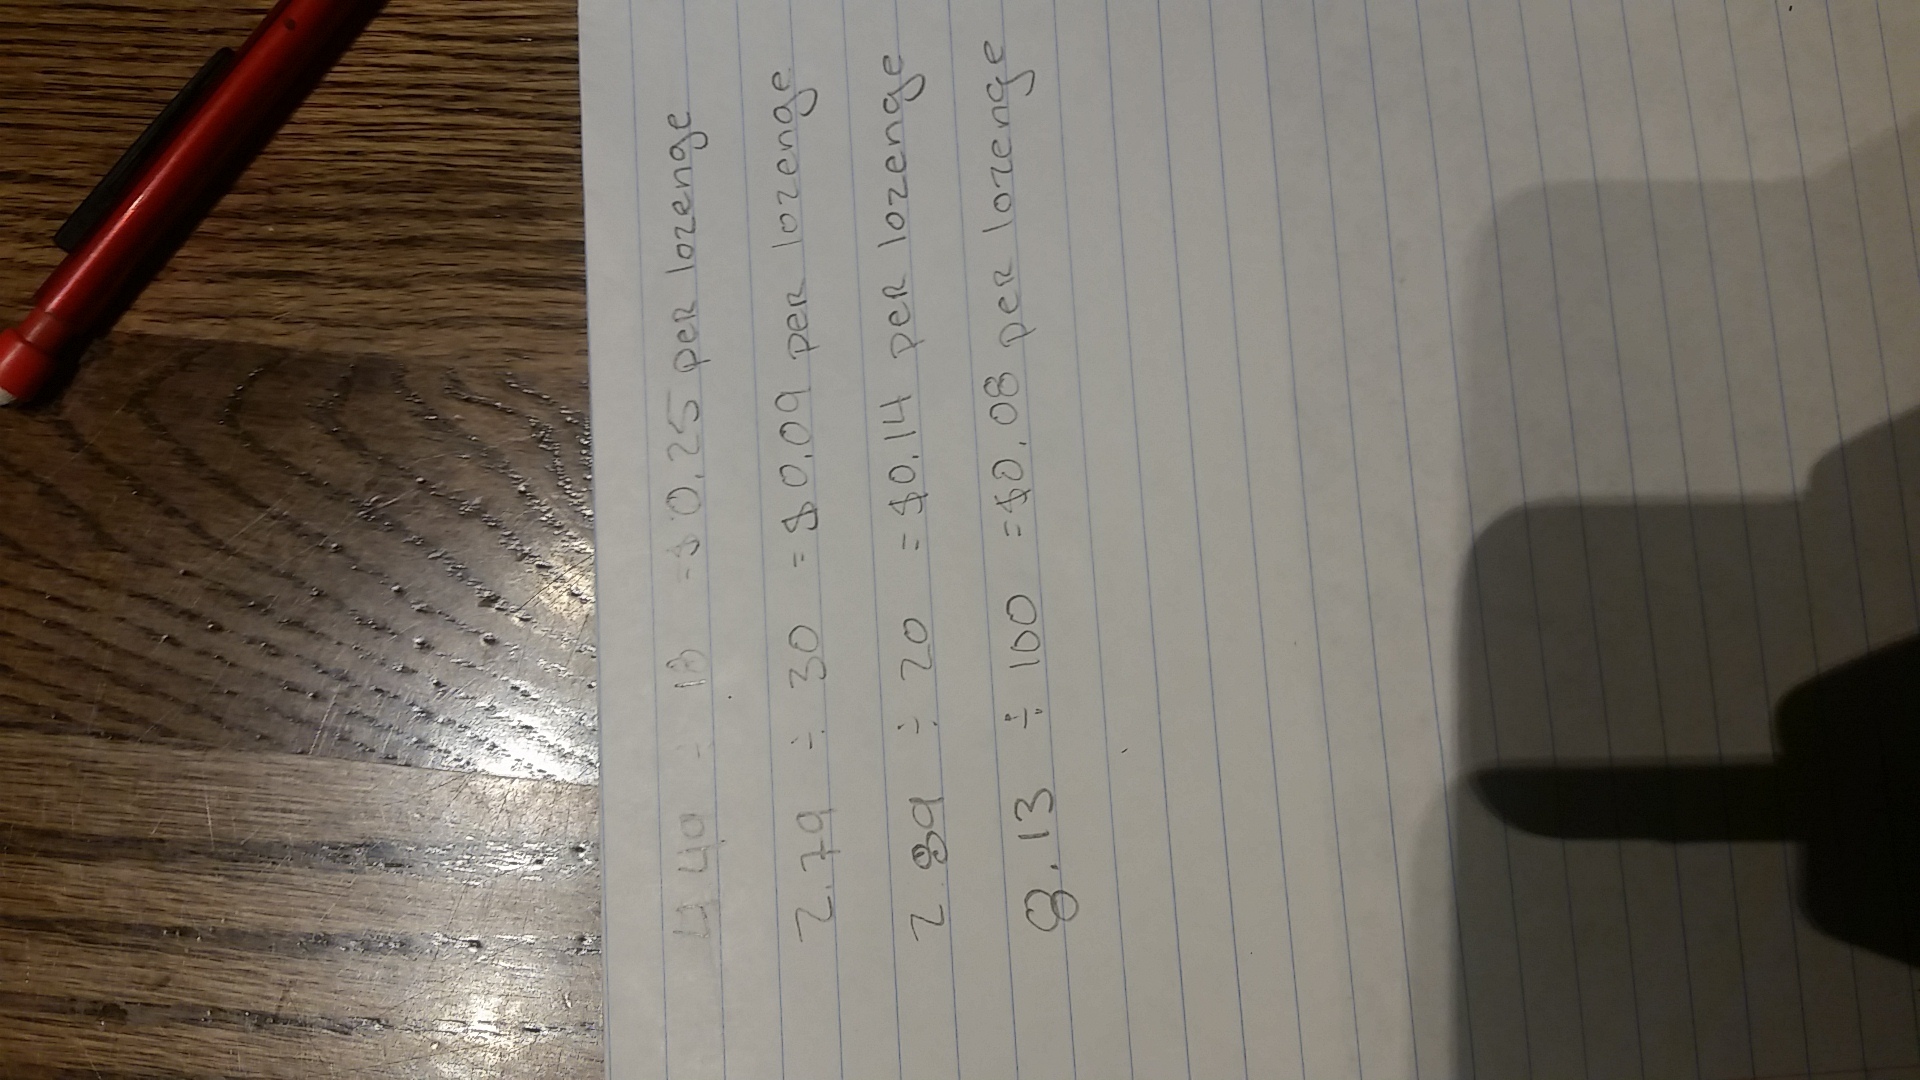 4.49 ÷ 18 = $0.25 per lozenge
2.79 ÷ 30 = $0.09 per lozenge
2.89 ÷ 20 = $0.14 per lozenge
8.13 ÷ 100 = $0.08 per lozenge